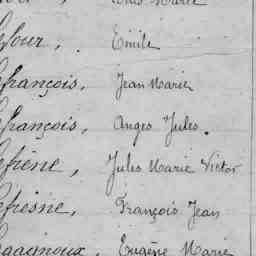 Marie
efour, Emile
efrançois, Jean Marie
efrançois, Anges Jules.
efrène, Jules Marie Victor
efresne, François Jean
egagnoux, Eugène Marie